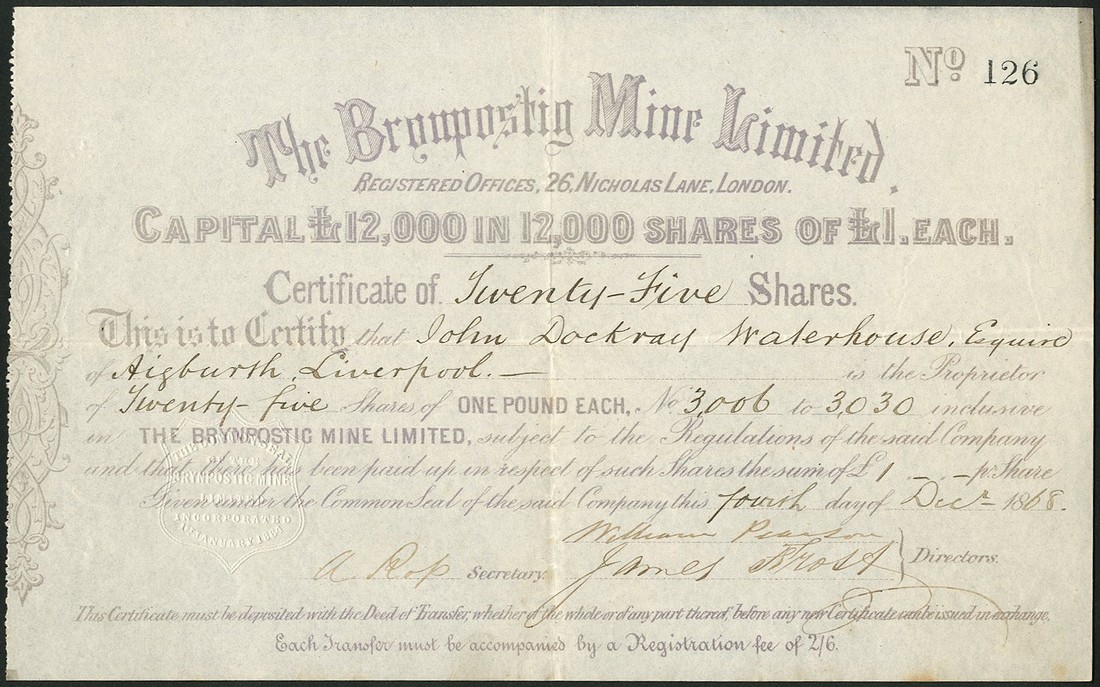 No 126
The Brynpostig Mine Limited.
REGISTERED OFFICES, 26, NICHOLAS LANE, LONDON.
CAPITAL £12,000 IN 12,000 SHARES OF £1. EACH.
Certificate of Twenty-Five Shares.
This is to Certify that John Dockray Waterhouse, Esquire
of Aigburth, Liverpool. — is the Proprietor
of Twenty-five Shares of ONE POUND EACH, No 3,006 to 3,030 inclusive
in THE BRYNPOSTIG MINE LIMITED, subject to the Regulations of the said Company
and that there has been paid up in respect of such Shares the sum of £1 . - . - pr Share
Given under the Common Seal of the said Company this fourth day of Decr 1868.
SEAL
OF THE
BRYNPOSTIG MINE
LIMITED
INCORPORATED
JANUARY
William Pearson
A Rop Secretary. James Frost } Directors.
This Certificate must be deposited with the Deed of Transfer, whether of the whole or of any part thereof, before any new Certificate can be issued in exchange.
Each Transfer must be accompanied by a Registration fee of 2/6.